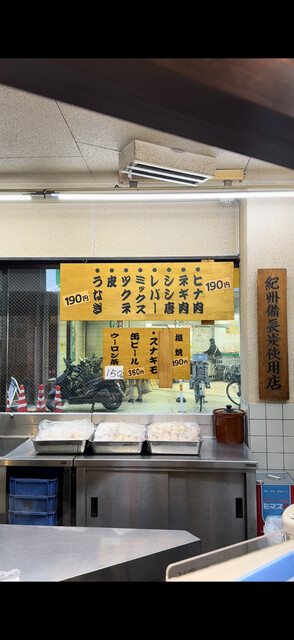 ヒナ肉
ネギ肉
シシ唐
レバー
ミックス
ツクネ
皮
うなぎ
190円
190円
塩焼
スナギモ
190円
缶ビール
350円
ウーロン茶
150
紀州備長炭使用店
ヒマス